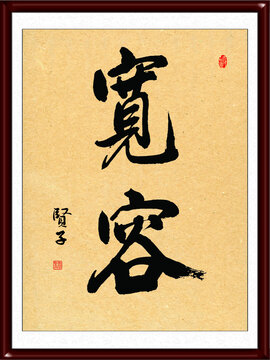 寬容
賢子